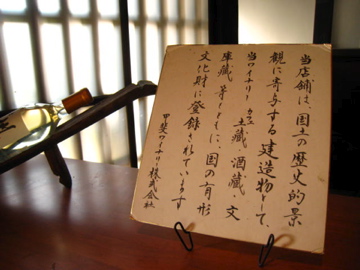 当店舗は、国土の歴史的景
観に寄与する建造物として、
当ワイナリー カフェ 土蔵・酒蔵・文
庫蔵、等とともに、国の有形
文化財に登録されています
甲斐ワイナリー株式会社